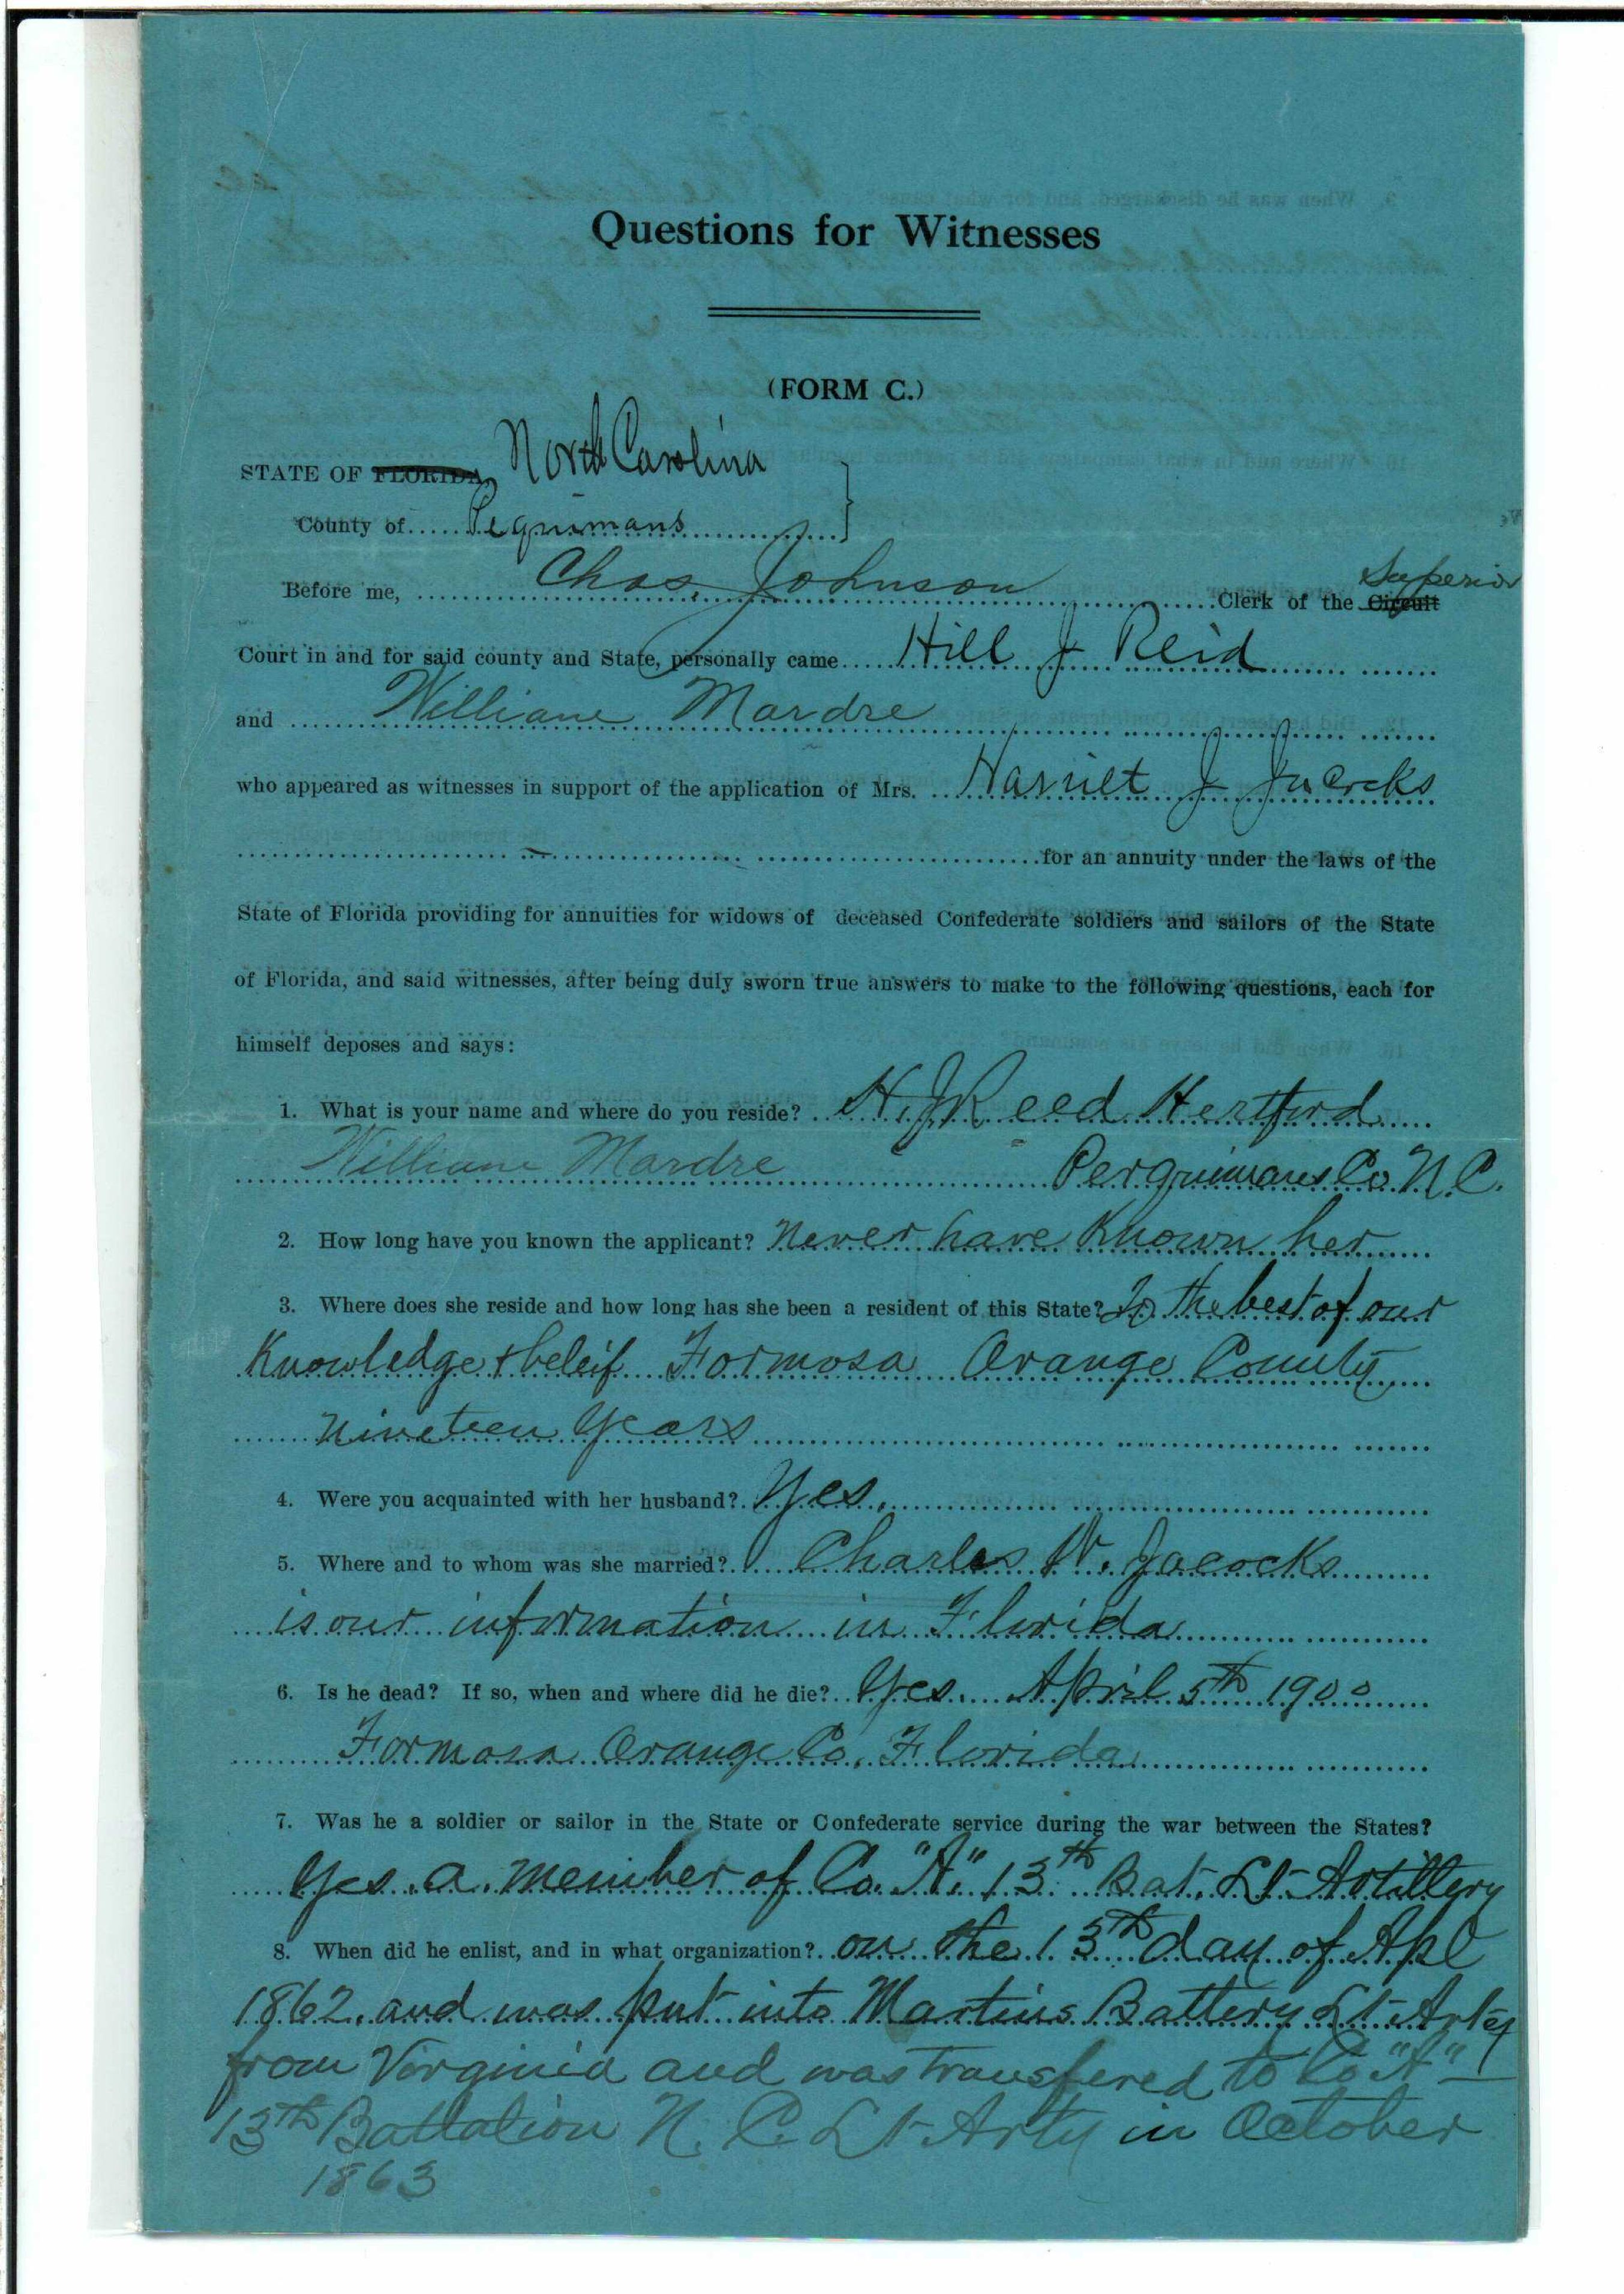 Questions for Witnesses
(FORM C.)
STATE OF FLORIDA, North Carolina
County of Pequimans
Before me, Chas. Johnson Clerk of the Circuit Superior
Court in and for said county and State, personally came Hill J Reid
and William Mardre
who appeared as witnesses in support of the application of Mrs. Harriet J
for an annuity under the laws of the
State of Florida providing for annuities for widows of deceased Confederate soldiers and sailors of the State
of Florida, and said witnesses, after being duly sworn true answers to make to the following questions, each for
himself deposes and says:
1. What is your name and where do you reside? H. J Reed Hertford
William Mardre Perquimans Co. N. C.
2. How long have you known the applicant? Never have Known her
3. Where does she reside and how long has she been a resident of this State? To the best of our
Knowledge & beleif Formosa Orange County
Nineteen Years
4. Were you acquainted with her husband? Yes.
5. Where and to whom was she married? Charles W. Jacocks
is our information in Florida
6. Is he dead? If so, when and where did he die? Yes. April 5th 1900
Formosa Orange Co. Florida
7. Was he a soldier or sailor in the State or Confederate service during the war between the States?
Yes. a. member of Co. "A" 13th Bat. Lt Artillery
8. When did he enlist, and in what organization? on the 13th day of Apl
1862. and was put into Martins Battery Lt Arty
from Virginia and was transfered to Co "A"
13th Battalion N. C. Lt Arty in October
1863